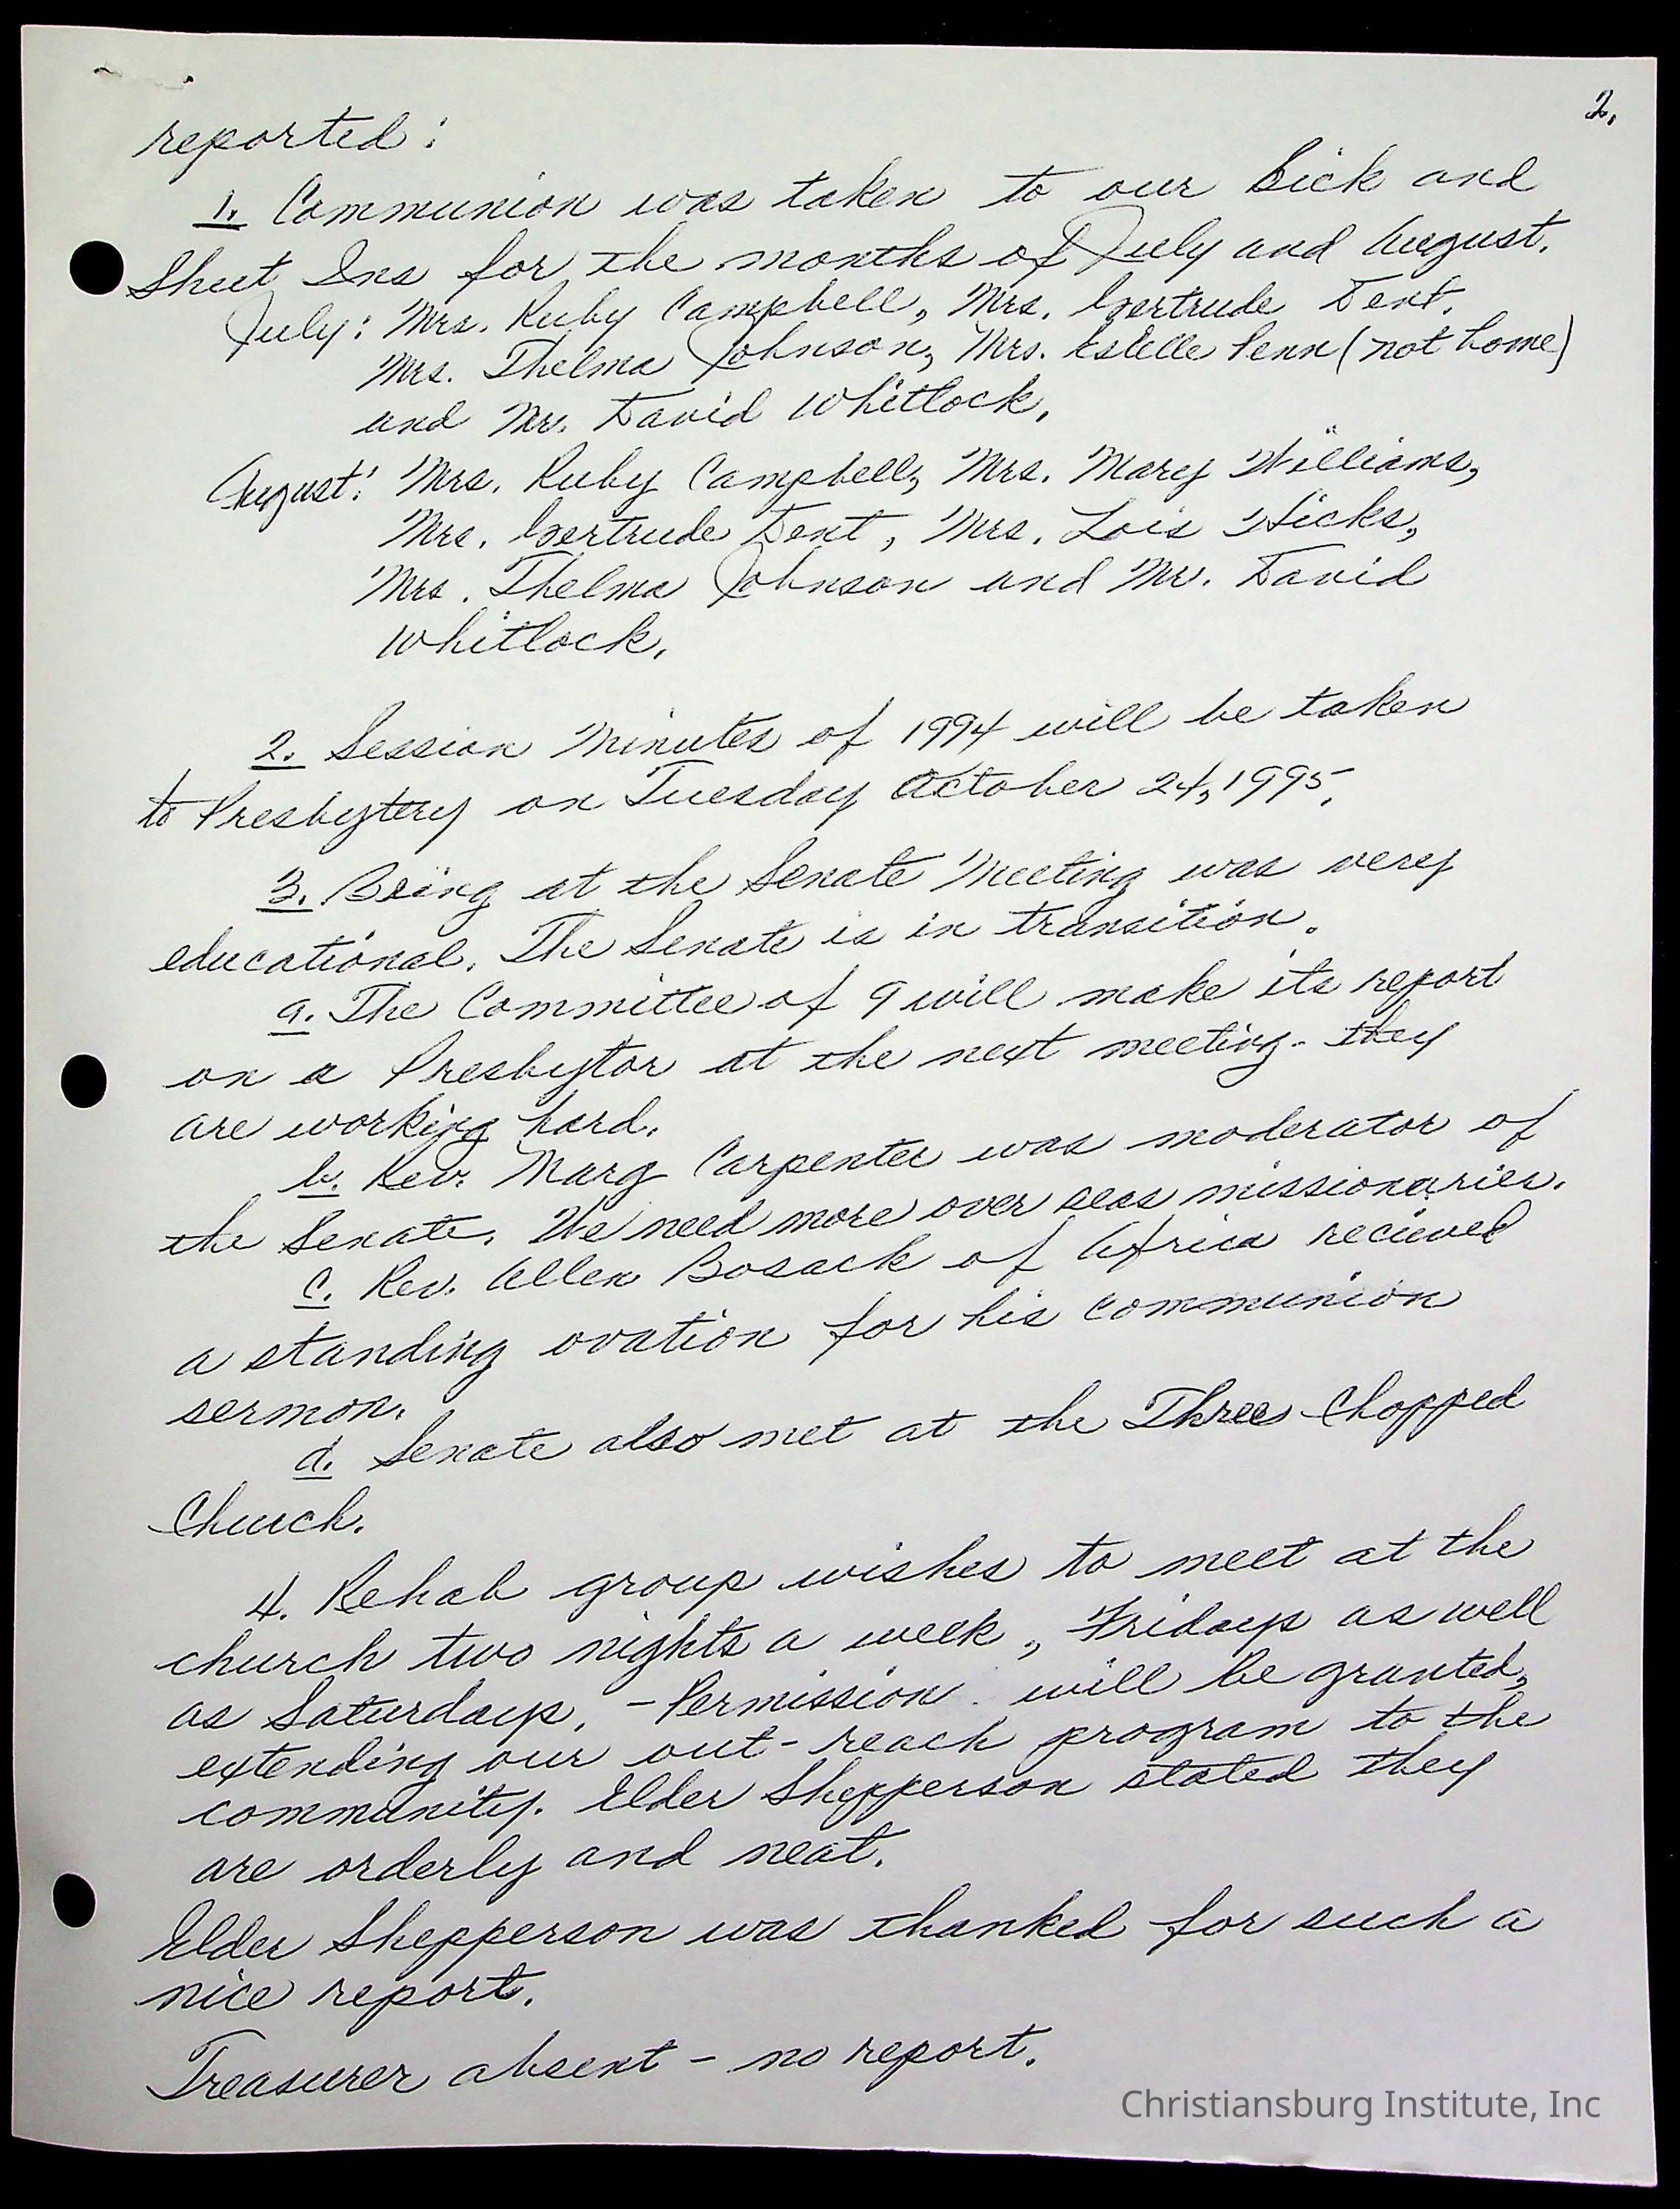 2.
reported:
1. Communion was taken to our Sick and
Shut Ins for the months of July and August.
July: Mrs. Ruby Campbell, Mrs. Gertrude Dent,
Mrs. Thelma Johnson, Mrs. Estelle Penn (not home)
and Mr. David Whitlock.
August: Mrs. Ruby Campbell, Mrs. Mary Williams,
Mrs. Gertrude Dent, Mrs. Lois Hicks,
Mrs. Thelma Johnson and Mr. David
Whitlock.
2. Session Minutes of 1994 will be taken
to Presbytery on Tuesday October 24, 1995.
3. Being at the Senate Meeting was very
educational. The Senate is in transition.
a. The Committee of 9 will make its report
on a Presbytor at the next meeting - they
are working hard.
b. Rev. Marg Carpenter was moderator of
the Senate. We need more over seas missionaries.
c. Rev. Allen Bosack of Africa recieved
a standing ovation for his communion
sermon.
d. Senate also met at the Three Chopped
Church.
4. Rehab group wishes to meet at the
church two nights a week, Fridays as well
as Saturdays. - Permission will be granted,
extending our out-reach program to the
community. Elder Shepperson stated they
are orderly and neat.
Elder Shepperson was thanked for such a
nice report.
Treasurer absent - no report.
Christiansburg Institute, Inc